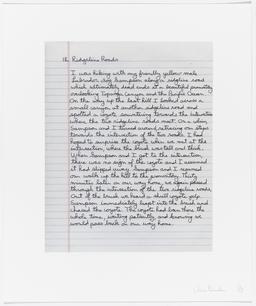 The Ridgeline Roads
I was hiking with my friendly yellow male
Labrador dog Sampson along a ridgeline road
which ultimately dead ends at a beautiful promontory
overlooking Topanga Canyon and the Pacific Ocean.
On the way up the last hill I looked across a
small canyon at another ridgeline road and
spotted a coyote scurrying towards the intersection
where the two ridgeline roads meet. On a whim
Sampson and I turned around retracing our steps
towards the intersection of the two roads. I had
hoped to surprise the coyote when we met at the
intersection, where the brush was tall and thick.
When Sampson and I got to the intersection,
there was no sign of the coyote and I assumed
it had slipped away. Sampson and I resumed
our walk up the hill to the promontory. Thirty
minutes later on our way home, we again passed
through the intersection of the two ridgeline roads.
Out of the brush we heard a shrill coyote yelp.
Sampson immediately leapt into the brush and
chased the coyote. The coyote had been there the
whole time, waiting patiently and knowing we
would pass back on our way home.